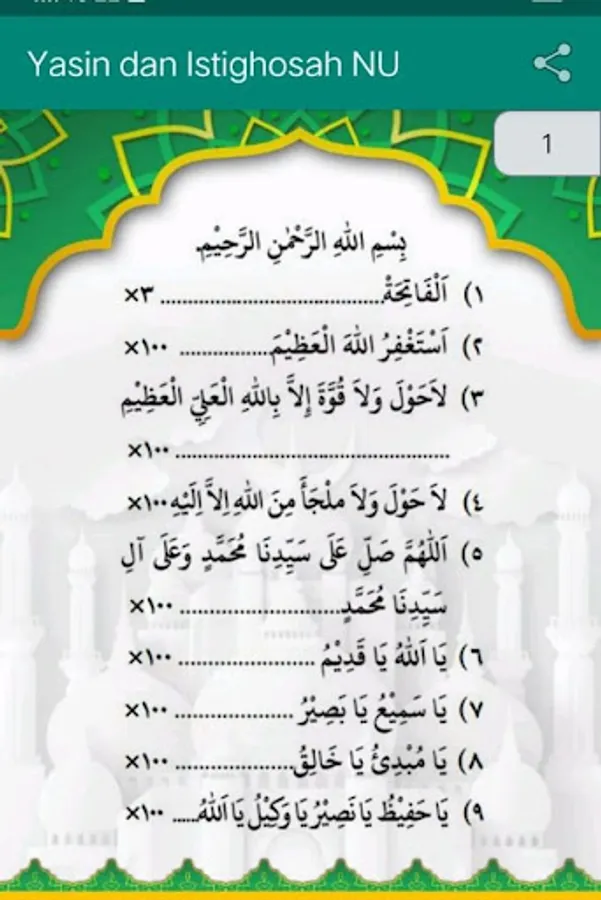 Yasin dan Istighosah NU
1
بِسْمِ اللهِ الرَّحْمٰنِ الرَّحِيْمِ.
١) اَلْفَاتِحَةْ...................................... ×٣
٢) اَسْتَغْفِرُ اللهَ الْعَظِيْمَ................. ×١٠٠
٣) لاَحَوْلَ وَلاَ قُوَّةَ إِلاَّ بِاللهِ الْعَلِيِّ الْعَظِيْمِ
............................................... ×١٠٠
٤) لاَ حَوْلَ وَلاَ مَلْجَأَ مِنَ اللهِ اِلاَّ اِلَيْهِ ×١٠٠
٥) اَللّٰهُمَّ صَلِّ عَلَى سَيِّدِنَا مُحَمَّدٍ وَعَلَى آلِ
سَيِّدِنَا مُحَمَّدٍ............................ ×١٠٠
٦) يَا اَللهُ يَا قَدِيْمُ ....................... ×١٠٠
٧) يَا سَمِيْعُ يَا بَصِيْرُ .................... ×١٠٠
٨) يَا مُبْدِئُ يَا خَالِقُ.................... ×١٠٠
٩) يَا حَفِيْظُ يَا نَصِيْرُ يَا وَكِيْلُ يَا اَللهُ..... ×١٠٠